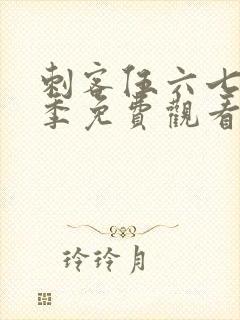 刺客伍六七
季免費觀看
玲玲月